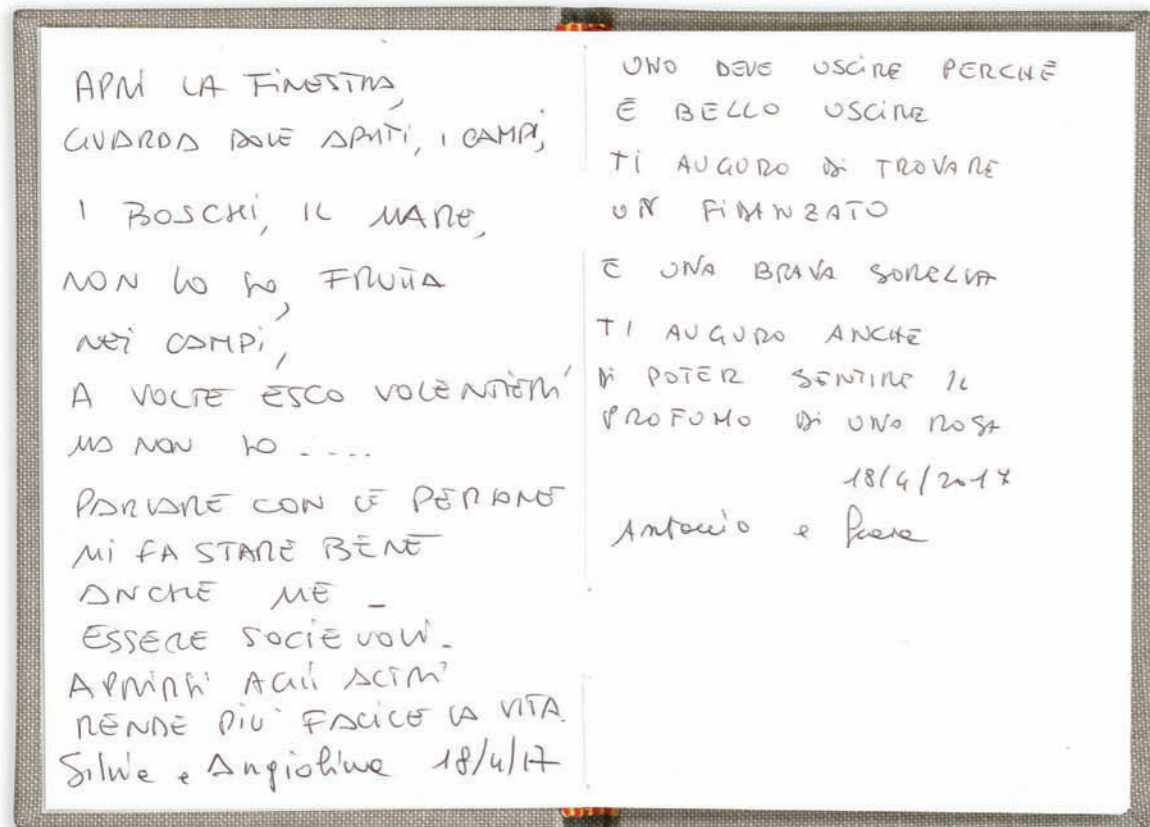 APRI LA FINESTRA,
GUARDA DOVE ABITI, I CAMPI,
I BOSCHI, IL MARE,
NON LO SO, FRUTTA
NEI CAMPI,
A VOLTE ESCO VOLENTIERI
MA NON SO .....
PARLARE CON LE PERSONE
MI FA STARE BENE
ANCHE ME -
ESSERE SOCIEVOLI -
APRIRSI AGLI ALTRI
RENDE PIU' FACILE LA VITA.
Silvia e Angiolina 18/4/17
UNO DEVE USCIRE PERCHÉ
È BELLO USCIRE
TI AUGURO DI TROVARE
UN FIDANZATO
E UNA BRAVA SORELLA
TI AUGURO ANCHE
DI POTER SENTIRE IL
PROFUMO DI UNA ROSA
18/4/2017
Antonio e